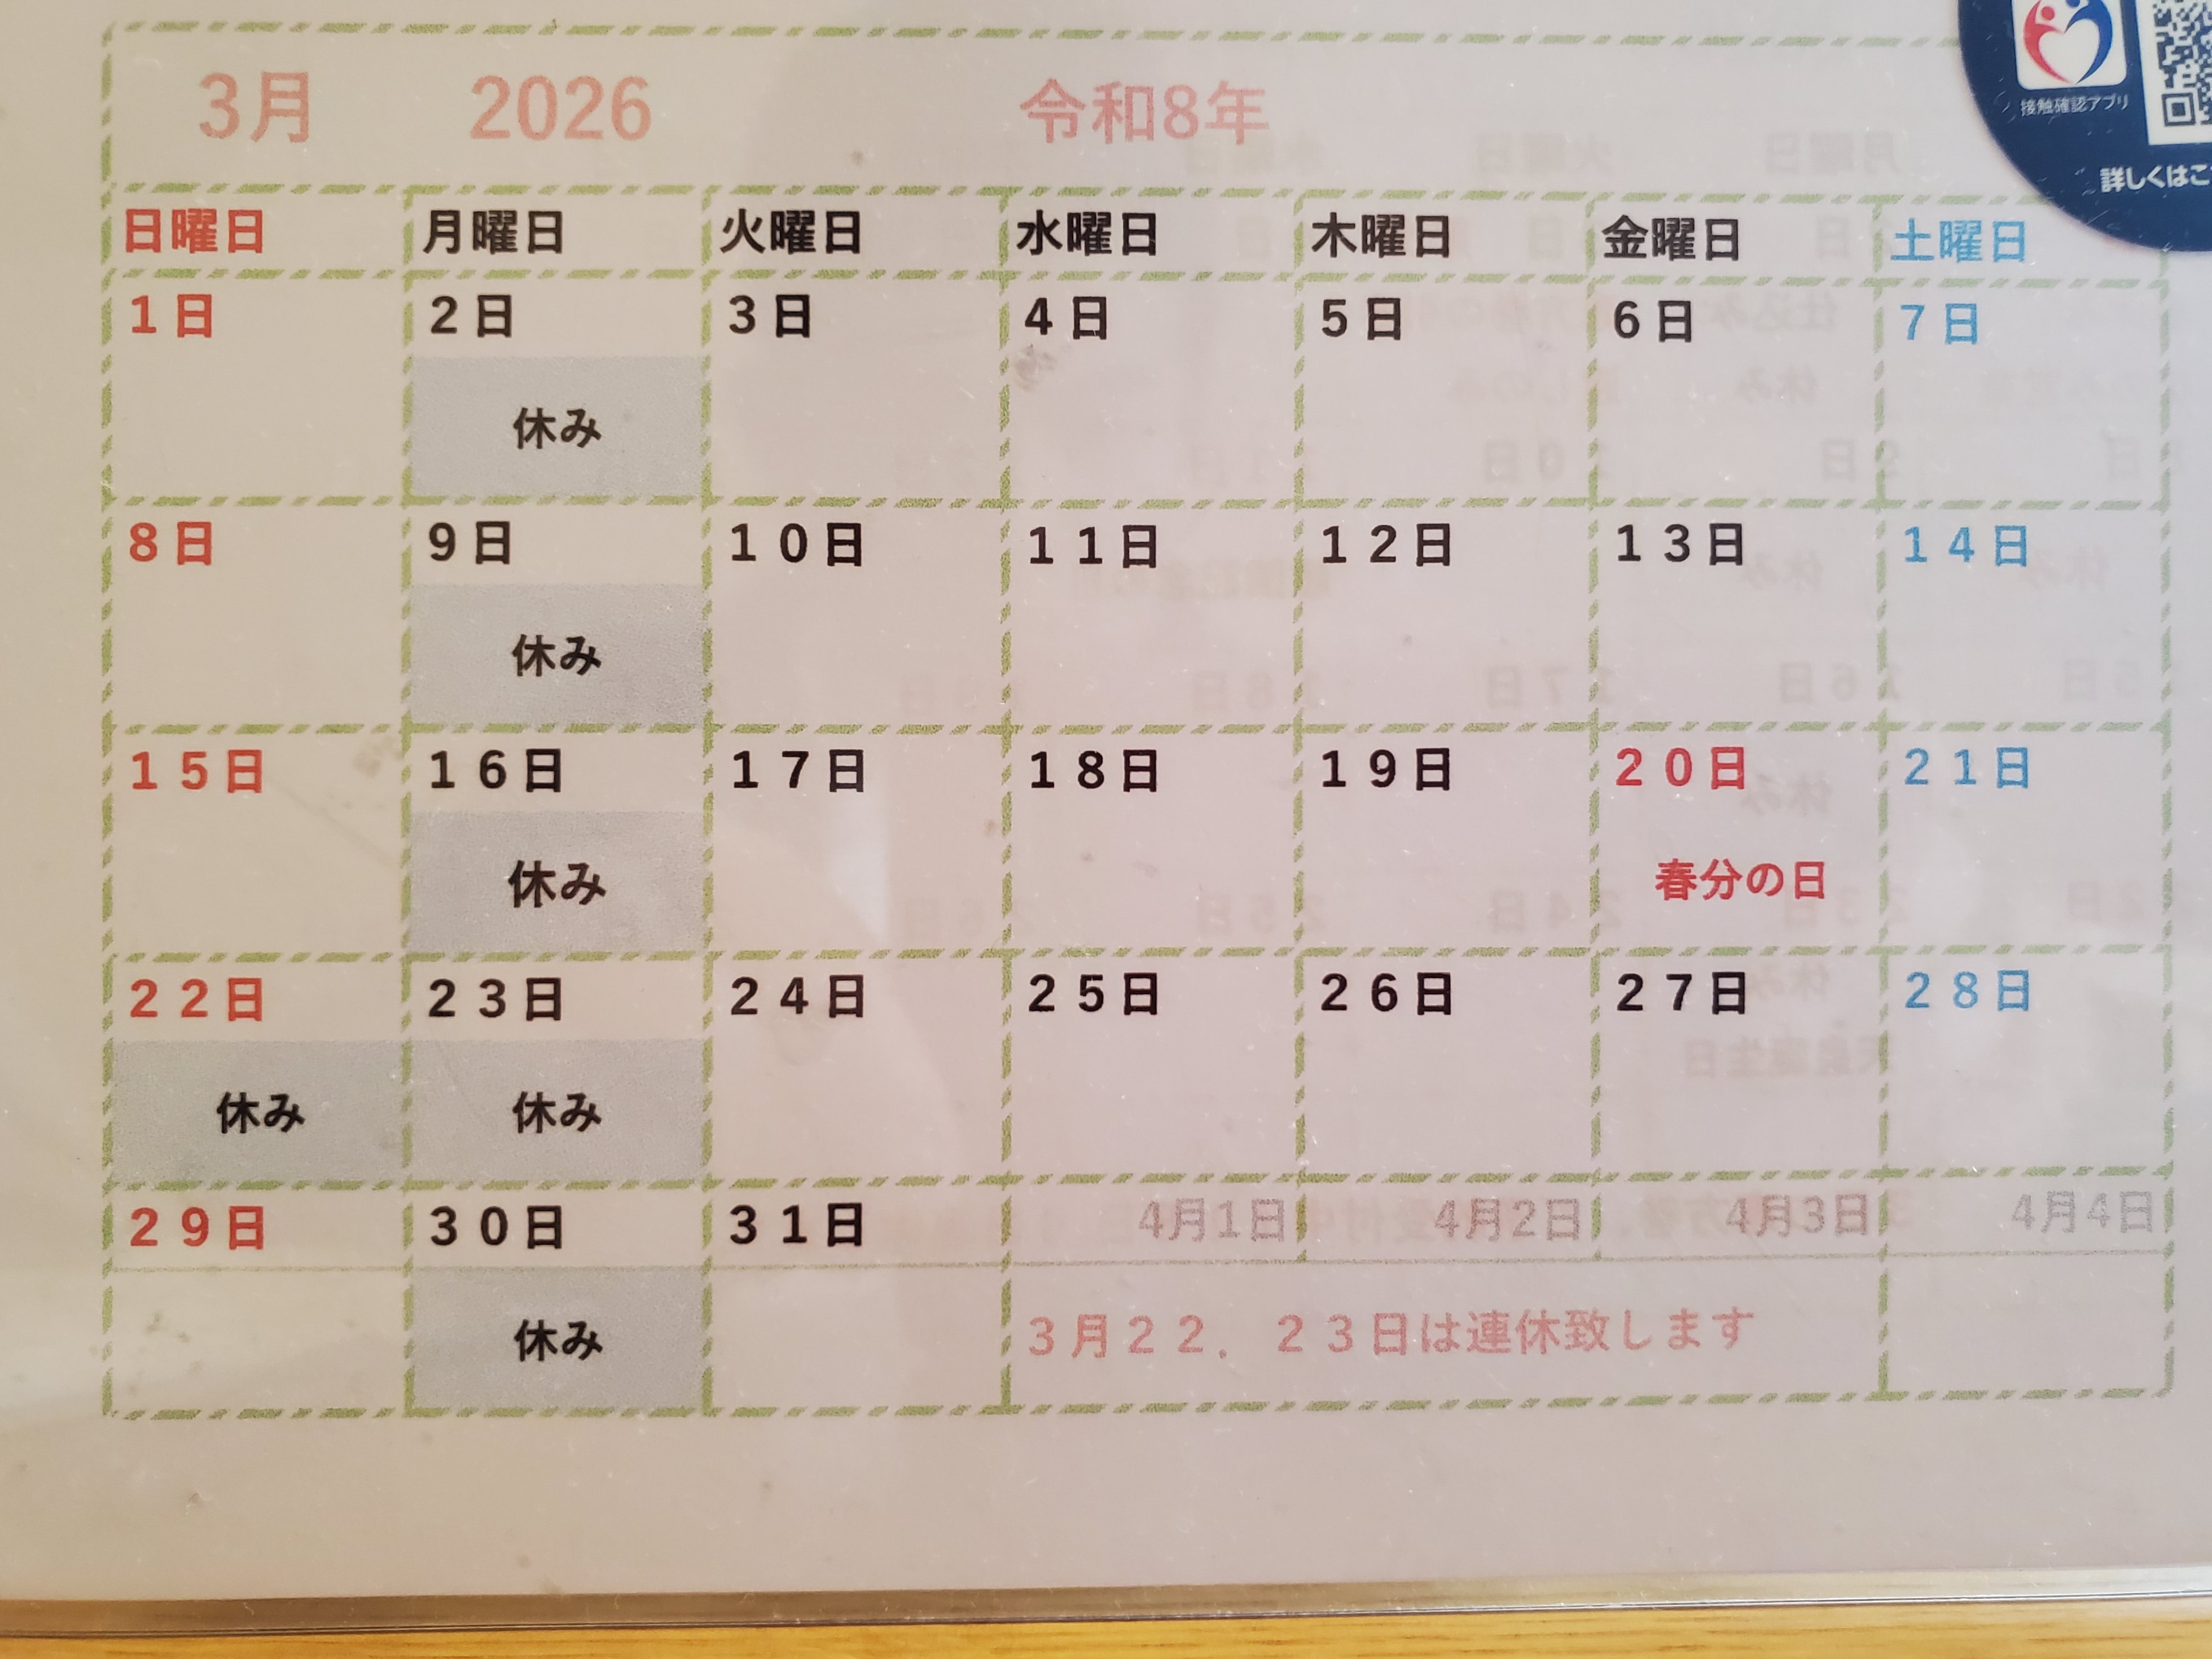 3月 2026 令和8年
接触確認アプリ
詳しくはこ
日曜日 月曜日 火曜日 水曜日 木曜日 金曜日 土曜日
1日 2日 3日 4日 5日 6日 7日
休み
8日 9日 10日 11日 12日 13日 14日
休み
15日 16日 17日 18日 19日 20日 21日
休み 春分の日
22日 23日 24日 25日 26日 27日 28日
休み 休み
29日 30日 31日 4月1日 4月2日 4月3日 4月4日
休み 3月22．23日は連休致します